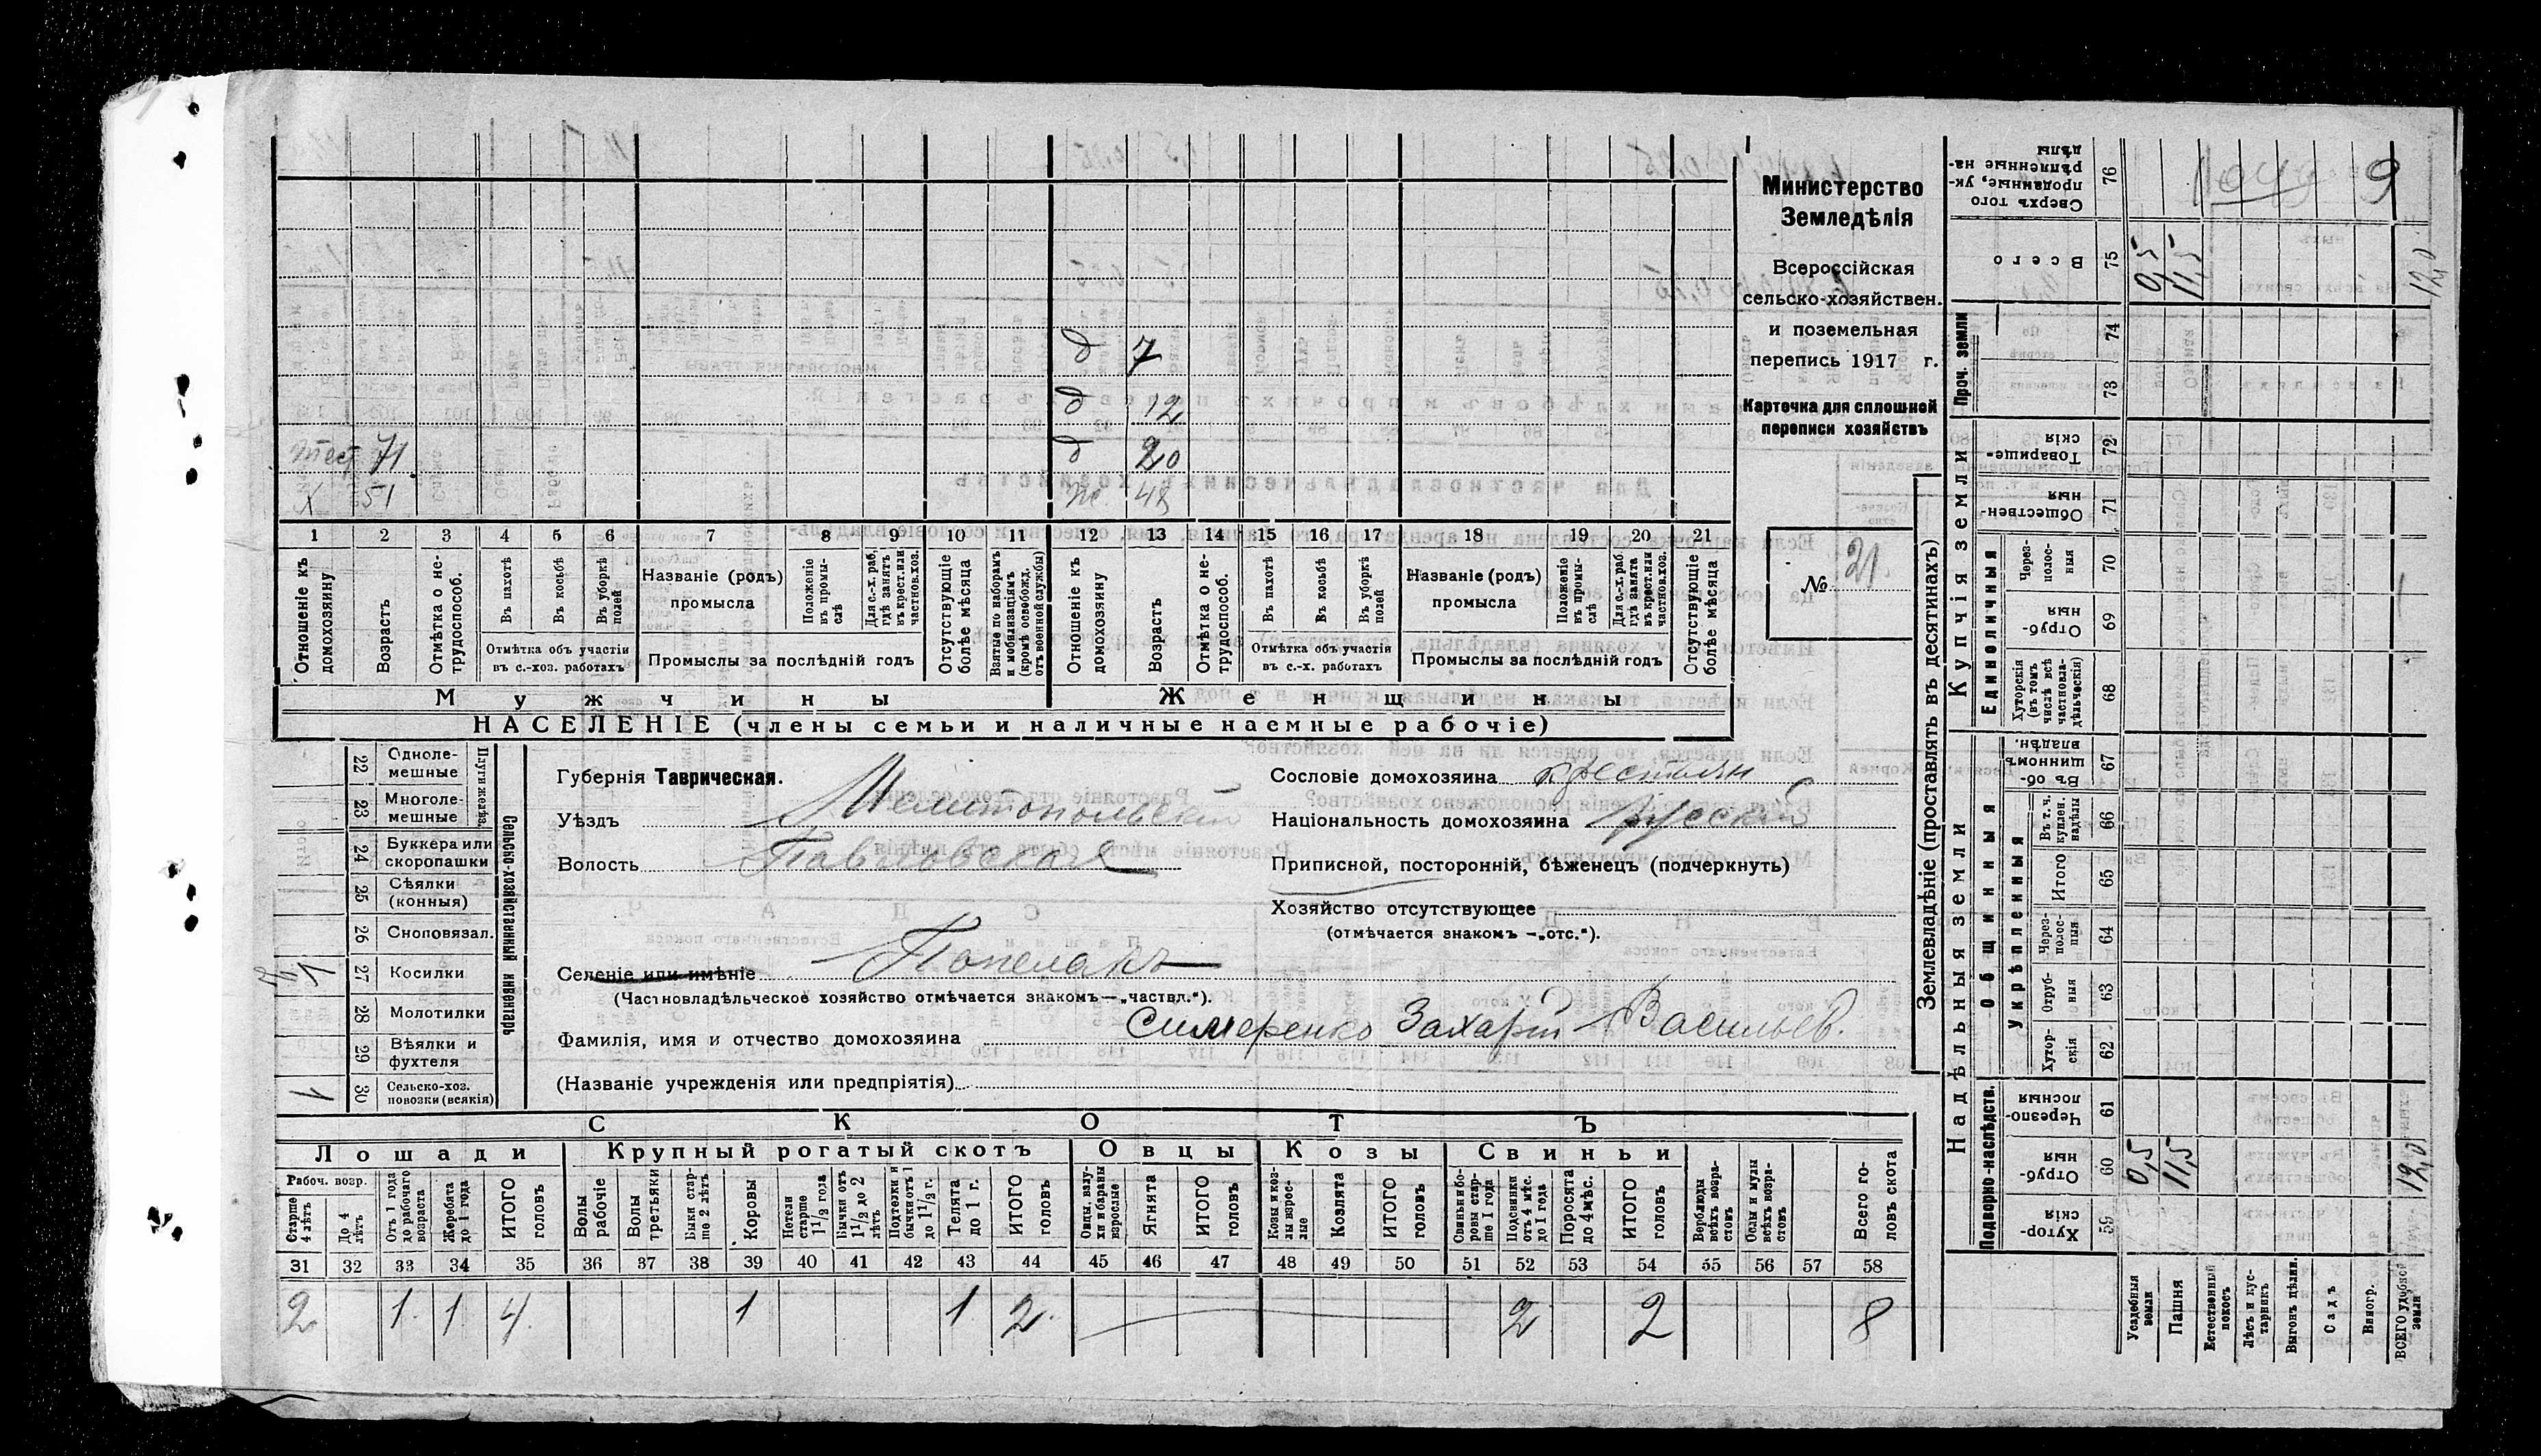 д 7
д 12
тест 71. д 20
х 51 ж. 48
1 2 3 4 5 6 7 8 9 10 11 12 13 14 15 16 17 18 19 20 21
Отношеніе къ домохозяину
Возрастъ
Отмѣтка о не-трудоспособ.
Въ пахотѣ
Въ косьбѣ
Въ уборкѣ полей
Отмѣтка объ участіи въ с.-хоз. работахъ
Названіе (родъ) промысла
Положеніе въ промы-слѣ
Для с.-х. раб, гдѣ занятъ въ крест. или частнов. хоз.
Промыслы за послѣдній годъ
Отсутствующіе болѣе мѣсяца
Взятые по наборамъ и мобилизаціямъ (кромѣ освобожд. отъ военной службы)
Отношеніе къ домохозяину
Возрастъ
Отмѣтка о не-трудоспособ.
Въ пахотѣ
Въ косьбѣ
Въ уборкѣ полей
Отмѣтка объ участіи въ с.-х. работахъ
Названіе (родъ) промысла
Положеніе въ промы-слѣ
Для с.-х. раб. гдѣ занята въ крест. или частнов. хоз.
Промыслы за послѣдній годъ
Отсутствующіе болѣе мѣсяца
Мужчины Женщины
НАСЕЛЕНІЕ (члены семьи и наличные наемные рабочіе)
Министерство
Земледѣлія
Всероссійская
сельско-хозяйствен.
и поземельная
перепись 1917 г.
Карточка для сплошной
переписи хозяйствъ
№ 21.
22 Одноле-мешные
23 Многоле-мешные
Плуги желѣз.
24 Буккера или скоропашки
25 Сѣялки (конныя)
26 Сноповязал.
27 Косилки
28 Молотилки
29 Вѣялки и фухтеля
30 Сельско-хоз. повозки (всякія) 1
Сельско-хозяйственный инвентарь
Губернія Таврическая.
Уѣздъ Мелитопольскій
Волость Павловская
Селеніе или имѣніе Попелакъ
(Частновладѣльческое хозяйство отмѣчается знакомъ—„частвл.“).
Фамилія, имя и отчество домохозяина Симеренко Захарій Васильев.
(Названіе учрежденія или предпріятія)
Сословіе домохозяина крестьян
Національность домохозяина русскій
Приписной, посторонній, бѣженецъ (подчеркнуть)
Хозяйство отсутствующее
(отмѣчается знакомъ —„отс.“).
СКОТЪ
Лошади Крупный рогатый скотъ Овцы Козы Свиньи
Рабоч. возр.
Старше 4 лѣтъ
До 4 лѣтъ
Отъ 1 года до рабочаго возраста
Жеребята до 1 года
ИТОГО головъ
Волы рабочіе
Волы третьяки
Быки стар-ше 2 лѣтъ
Коровы
Нетели старше 1 1/2 года
Бычки отъ 1 1/2 до 2 лѣтъ
Подтелки и бычки отъ 1 до 1 1/2 г.
Телята до 1 г.
ИТОГО головъ
Овцы, валу-хи и бараны взрослые
Ягнята
ИТОГО головъ
Козы и коз-лы взрос-лые
Козлята
ИТОГО головъ
Свиньи бо-ровы стар-ше 1 года
Подсвинки отъ 4 мѣс. до 1 года
Поросята до 4 мѣс.
ИТОГО головъ
Верблюды всѣхъ возра-стовъ
Ослы и мулы всѣхъ возра-стовъ
Всего го-ловъ скота
31 32 33 34 35 36 37 38 39 40 41 42 43 44 45 46 47 48 49 50 51 52 53 54 55 56 57 58
2 1. 1 4. 1 1 2. 2 2 8
Землевладѣніе (проставлять въ десятинахъ)
Надѣльныя земли Купчія земли Проч. земли
Подворно-наслѣдств.
Общинныя
Укрѣпленныя
Единоличныя
Хутор-скія 59
Отруб-ныя 60 0,5 11,5 12,0
Черезпо-лосныя 61
Хутор-скія 62
Отруб-ныя 63
Через-полос-ныя 64
Итого 65
Въ т. ч. куплен. надѣлы 66
Въ об-щинномъ владѣн. 67
Хуторскія (въ томъ числѣ всѣ частновла-дѣльческія) 68
Отруб-ныя 69
Через-полос-ныя 70
Обществен-ныя 71
Товарище-скія 72
73
74
Всего 75 0,5 11,5 12,0
Сверхъ того проданные, ук-рѣпленные на-дѣлы 76
9
Усадебныя земли
Пашня
Естественный покосъ
Лѣсъ и кус-тарникъ
Выгонъ цѣлин.
Садъ
Виногр.
ВСЕГО удобной земли